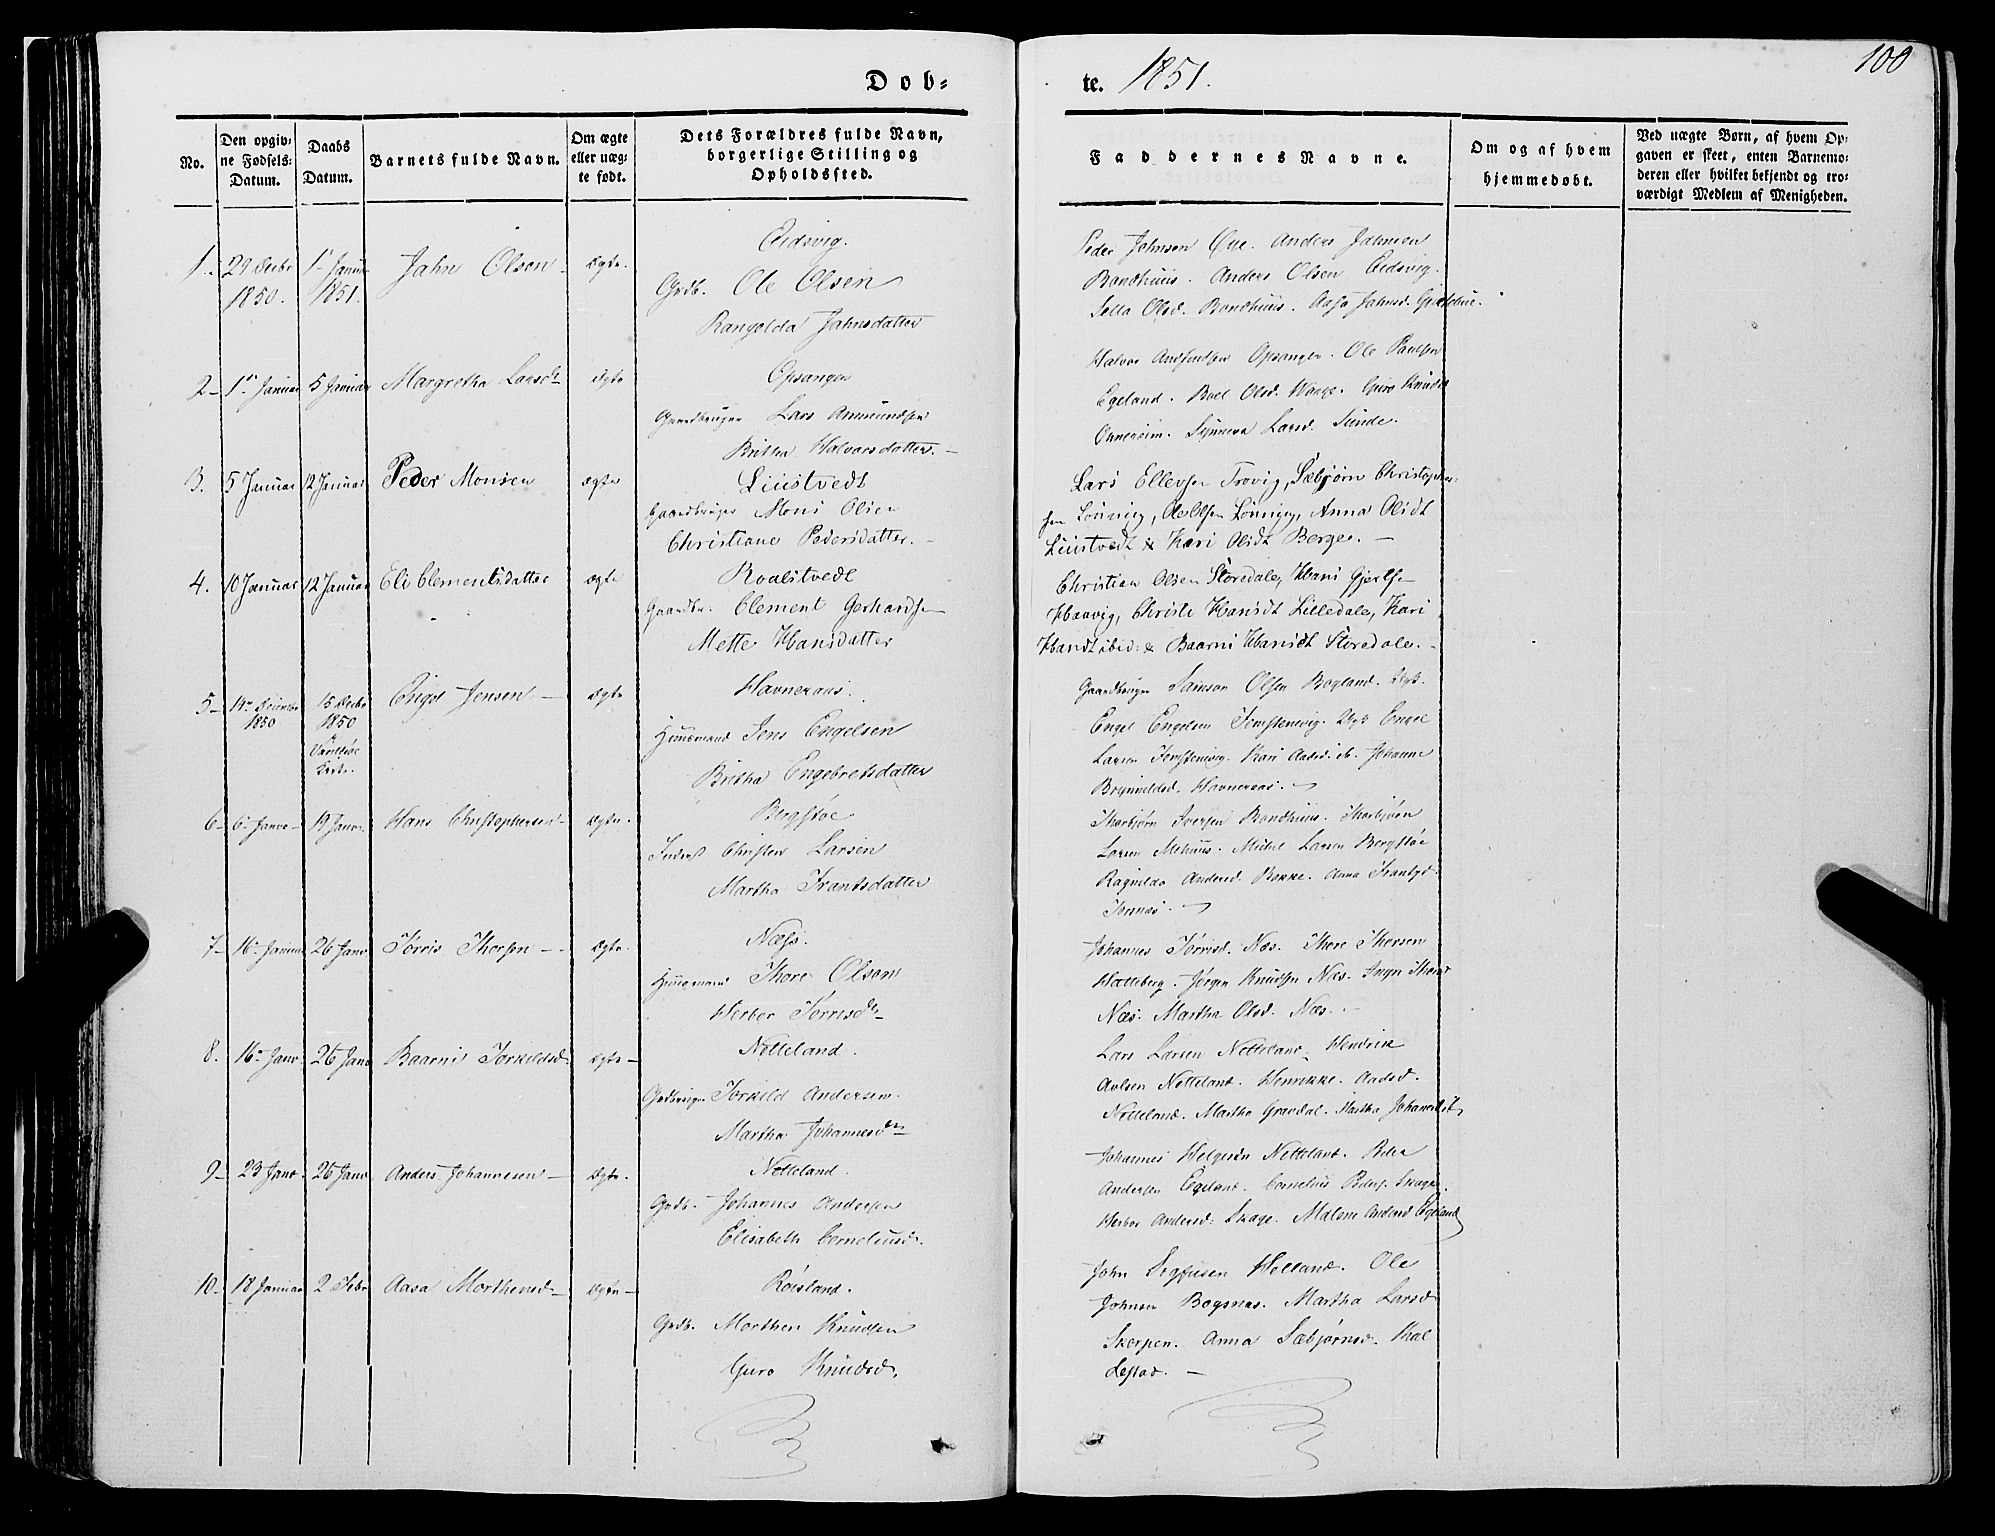 Døb-
te. 1851.
100
No.
Den opgiv-
ne Fødsels-
Datum.
Daabs
Datum.
Barnets fulde Navn.
Om ægte
eller uæg-
te født.
Dets Forældres fulde Navn,
borgerlige Stilling og
Opholdssted.
Faddernes Navne.
Om og af hvem
hjemmedøbt.
Ved uægte Børn, af hvem Op-
gaven er skeet, enten Barnemo-
deren eller hvilket bekjendt og tro-
værdigt Medlem af Menigheden.
1. 29 Decbr 1850. 1 Januar 1851. Jahn Olsen ægte.
Eidsvig.
Grdb. Ole Olsen
Jahnsdatter
Peder Johnsen Øye. Anders Jahnsen
Bondhuus. Anders Olsen Eidsvig.
Olsd. Bondhuus. Jahnsd.
2 1 Januar 5 Januar Margretha Larsdr ægte
Opsanger
Gaardbruger Lars Ammundsen
Britha Halvorsdatter.
Halvor Opsanger. Ole Paulsen
Egeland. Olsd. Waage. Guro Knudsd
Larsd. Sunde.
3. 5 Januar 12 Januar Peder Monsen ægte
Liustvedt
Gaardbruger Mons Olsen
Christiane Pedersdatter.
Lars Ellevsen Trovig, Sæbjørn Christophers-
sen Lønning, Ole Olsen Lønning, Anna Olsdt
Liustvedt & Kari Olsdt Berge.
4. 10 Januar 12 Januar Eli Clementsdatter ægte
Roalstvedt
Gaardbr. Clement Gerhardsen
Mette Hansdatter
Christian Olsen Storedale, Hans Gjertsen
Haavig, Christi Hansdt Lilledale, Kari
Hansdt ibid: & Baarni Hansdt Storedale.
5 14 Decembr 1850 15 Decbr 1850 Engel Jensen ægte
Havneraas.
Huusmand Jens Engelsen
Britha Engebretsdatter
Gaardbruger Samson Olsen Bogland.
Engel Engelsen Engel
Larsen Kari Johanne
Havneraas.
6 6 Janr 19 Janr. Hans Christophersen ægte.
Bergstøe
Inderst Christen Larsen
Martha Frantsdatter
Thorbjørn Iversen Bondhuus. Thorbjørn
Larsen Melhuus. Michel Larsen Bergstøe
Ragnilda Andersd. Bakke. Anna Frantsd
7 16 Januar 26 Janr Tørris Thorsen ægte.
Næss.
Huusmand Thore Olsen
Herbor Tørrisdr
Johannes Tørrisd. Næs. Thore Thorsen
Hatteberg. Jørgen Knudsen Næs.
Næs. Martha Olsd. Næs.
8. 16 Janr 26 Janr Baarni Torkildsd. ægte
Netteland.
Grdbruger Torkild Andersen.
Martha Johannesdtr
Lars Larsen Netteland. Hendrik
Netteland. Henrikke. Aadsd.
Netteland. Martha Gravdal. Martha Johannesdt
9 23 Janr. 26 Janr Anders Johannesen ægte.
Netteland.
Grdb. Johannes Andersen
Elisabeth Corneliusd.
Johannes Helgesen Netteland. Peder
Andersen Egeland. Cornelius Peders. Skage.
Herbor Andersd: Skage. Malene Andersd Egeland
10 18 Januar 2 Febr Aasa Morthensd ægte
Røisland.
Grdb. Morthen Knudsen
Guro Knudsd.
John Sigfusen Helland. Ole
Johnsen Bogsnæs. Martha Larsd
Skorpen. Anna Sæbjørnsd. Hal
destad.